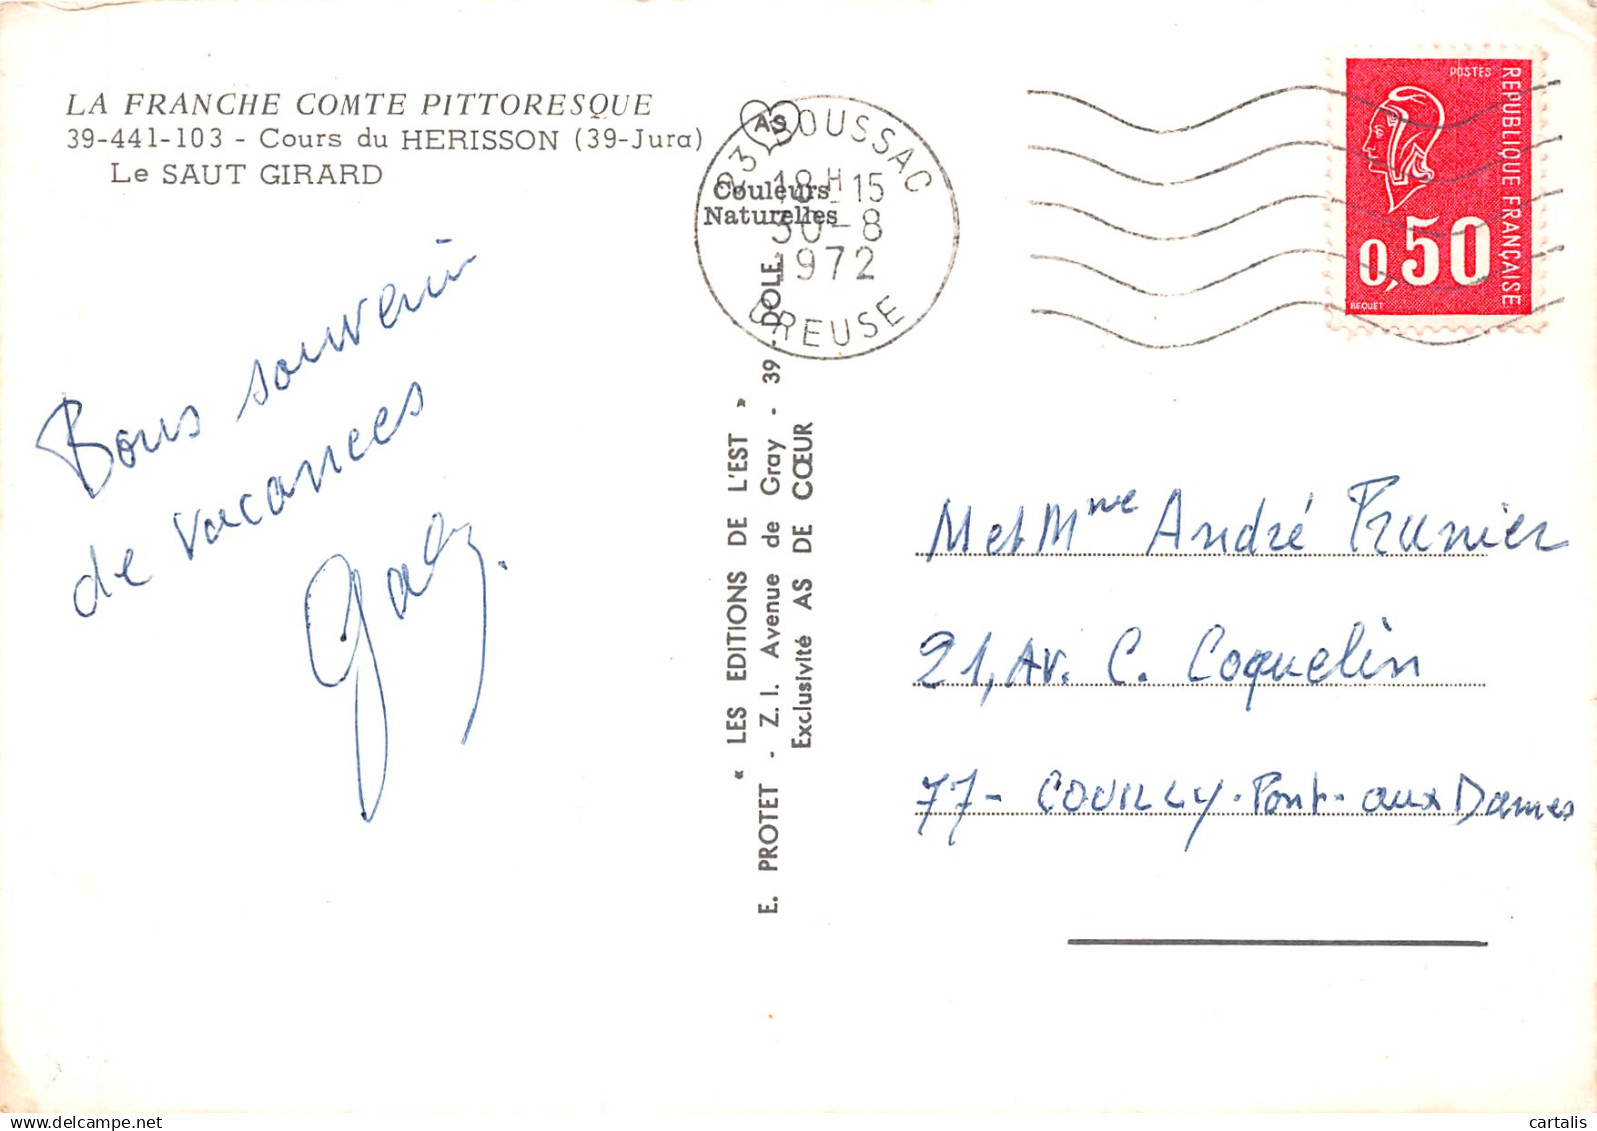 LA FRANCHE COMTE PITTORESQUE
39-441-103 - Cours du HERISSON (39-Jura)
Le SAUT GIRARD
AS
Couleurs
Naturelles
23 BOUSSAC
18 H 15
30-8
1972
CREUSE
POSTES
REPUBLIQUE FRANÇAISE
0,50
BEQUET
Bons souvenir
de vacances
« LES EDITIONS DE L'EST »
E. PROTET - Z. I. Avenue de Gray - 39 - DOLE
Exclusivité AS DE CŒUR
M et Mme André Prunier
21, Av. C. Coquelin
77 - COUILLY-Pont-aux Dames
cartalis